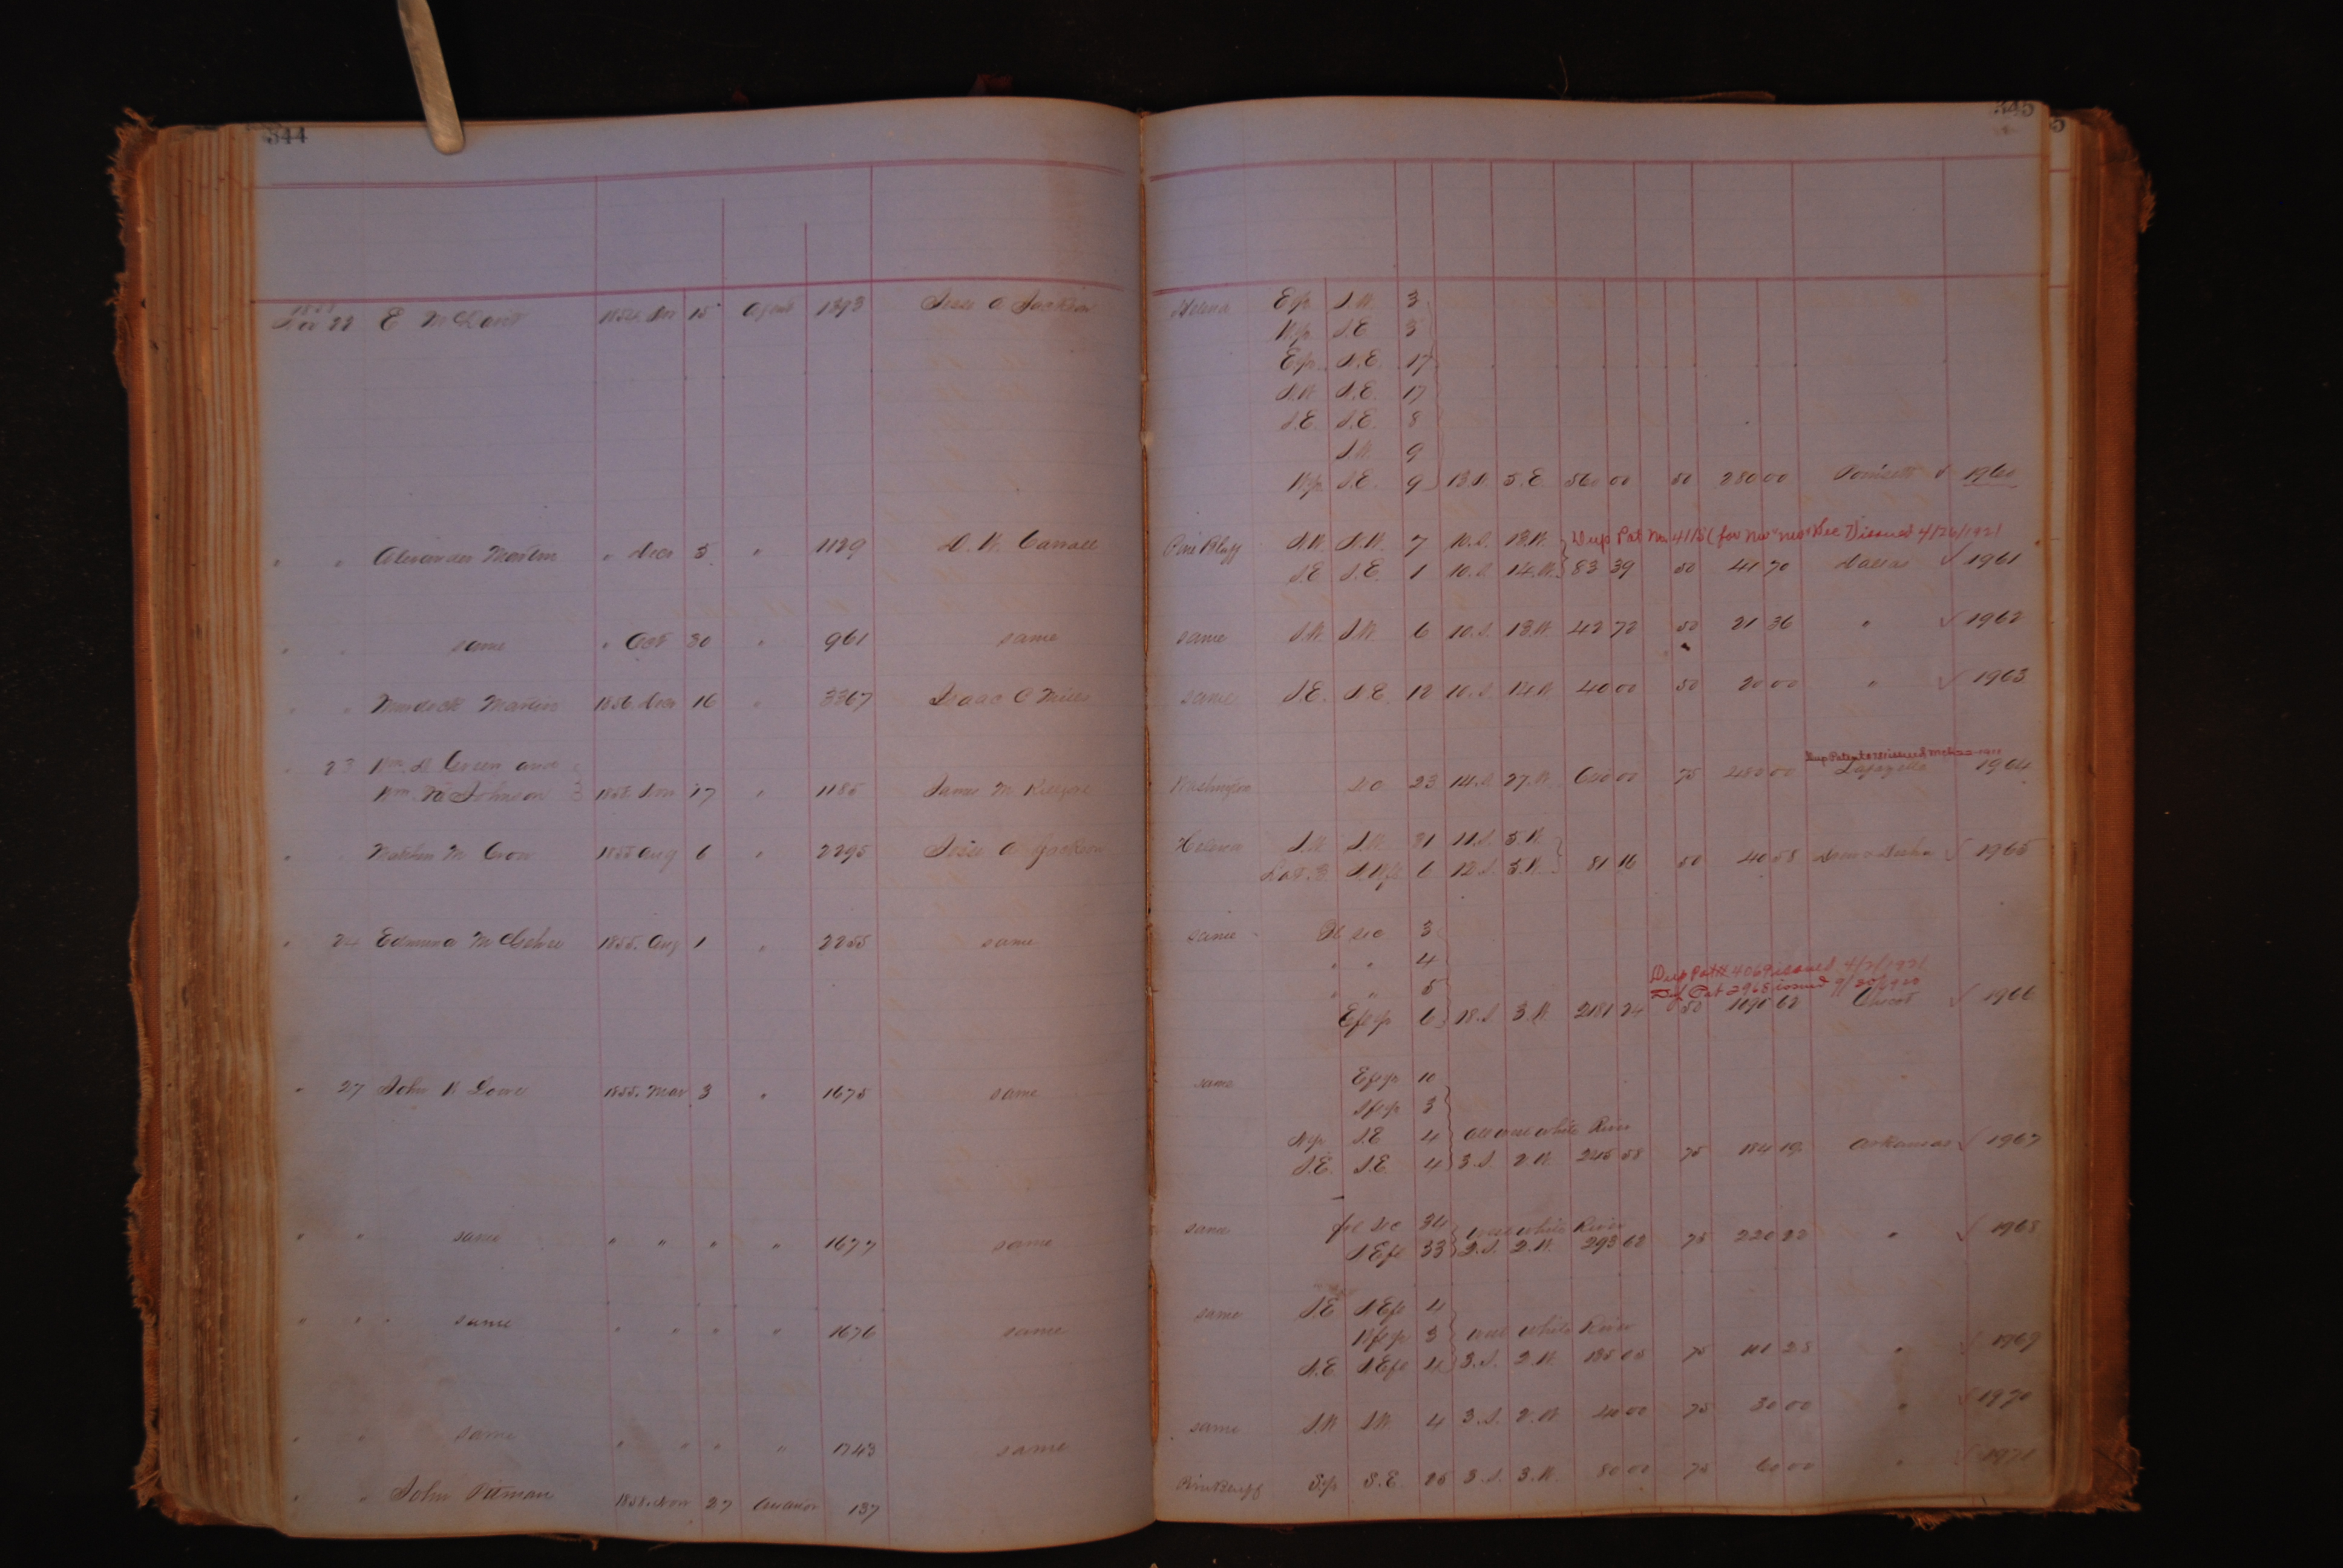 344
345
5
1858
Nov 22 E McDavit 1854 Nov 15 Agent 1393 Jesse A Jackson Helena E½ S.W. 3
W½ S.E 3
E½ N.E. 17
N.W. N.E. 17
S.E. S.E. 8
S.W. 9
W½ S.E. 9 13.N. 5.E 560 00 50 280 00 Poinsett ✓ 1960
Dup Pat No 4115 (for issued 4/26/1921
" " Alexander Martin " Decr 5 " 1129 D. W. Carroll Pine Bluff N.W. N.W. 7 10.S. 13.W.
S.E S.E. 1 10.S 14.W. 83 39 50 41 70 Dallas ✓ 1961
" " same " Oct 30 " 961 same same S.W. S.W. 6 10.S. 13.W. 42 72 50 21 36 " ✓ 1962
" " Murdock Martin 1856. Decr 16 " 3367 Isaac C Mills same S.E. N.E. 12 10.S. 14.W 40 00 50 20 00 " ✓ 1963
Dup Patent issued
" 23 Wm. Green and
Wm. Johnson 1858. Nov 17 " 1185 James M Washington Sec 23 14.S. 27.W. 640 00 75 480 00 Lafayette 1964
" " Mathew M Crow 1855 Aug 6 " 2295 Jesse A Jackson Helena S.W. S.W. 31 11.S. 3.W.
Lot. 3 N.W fl 6 12.S. 3.W. 81 16 50 40 58 Drew & Desha ✓ 1965
" 24 Edmund McGehee 1855. Aug 1 " 2255 same same Fl sec 3
" " 4
" " 5
Dup Pat # 4069 issued 4/2/1921
Def Pat 2968 issued 9/20/1920
E fl ½ 6 18.S 3.W. 2181 24 50 1090 62 Chicot ✓ 1966
" 27 John W Lowe 1855. Mar 3 " 1675 same same E fl ½ 10
S fl ½ 3
N½ S.E 4 all west White River
S.E. S.E 4 3.S. 2.W. 245 58 75 184 19 Arkansas ✓ 1967
" " same " " " " 1677 same same fl sec 34 west White River
S.E fl 33 2.S. 2.W. 293 62 75 220 22 " ✓ 1968
" " same " " " " 1676 same same S.E N.E fl 4
W fl ½ 3 west White River
N.E N.E fl 4 3.S. 2.W. 135 05 75 101 28 " ✓ 1969
" " same " " " " 1743 same same S.W S.W. 4 3.S. 2.W 40 00 75 30 00 " ✓ 1970
" " John Pitman 1858. Nov 27 137 Pine Bluff S½ S.E. 25 3.S. 3.W. 80 00 75 60 00 " ✓ 1971